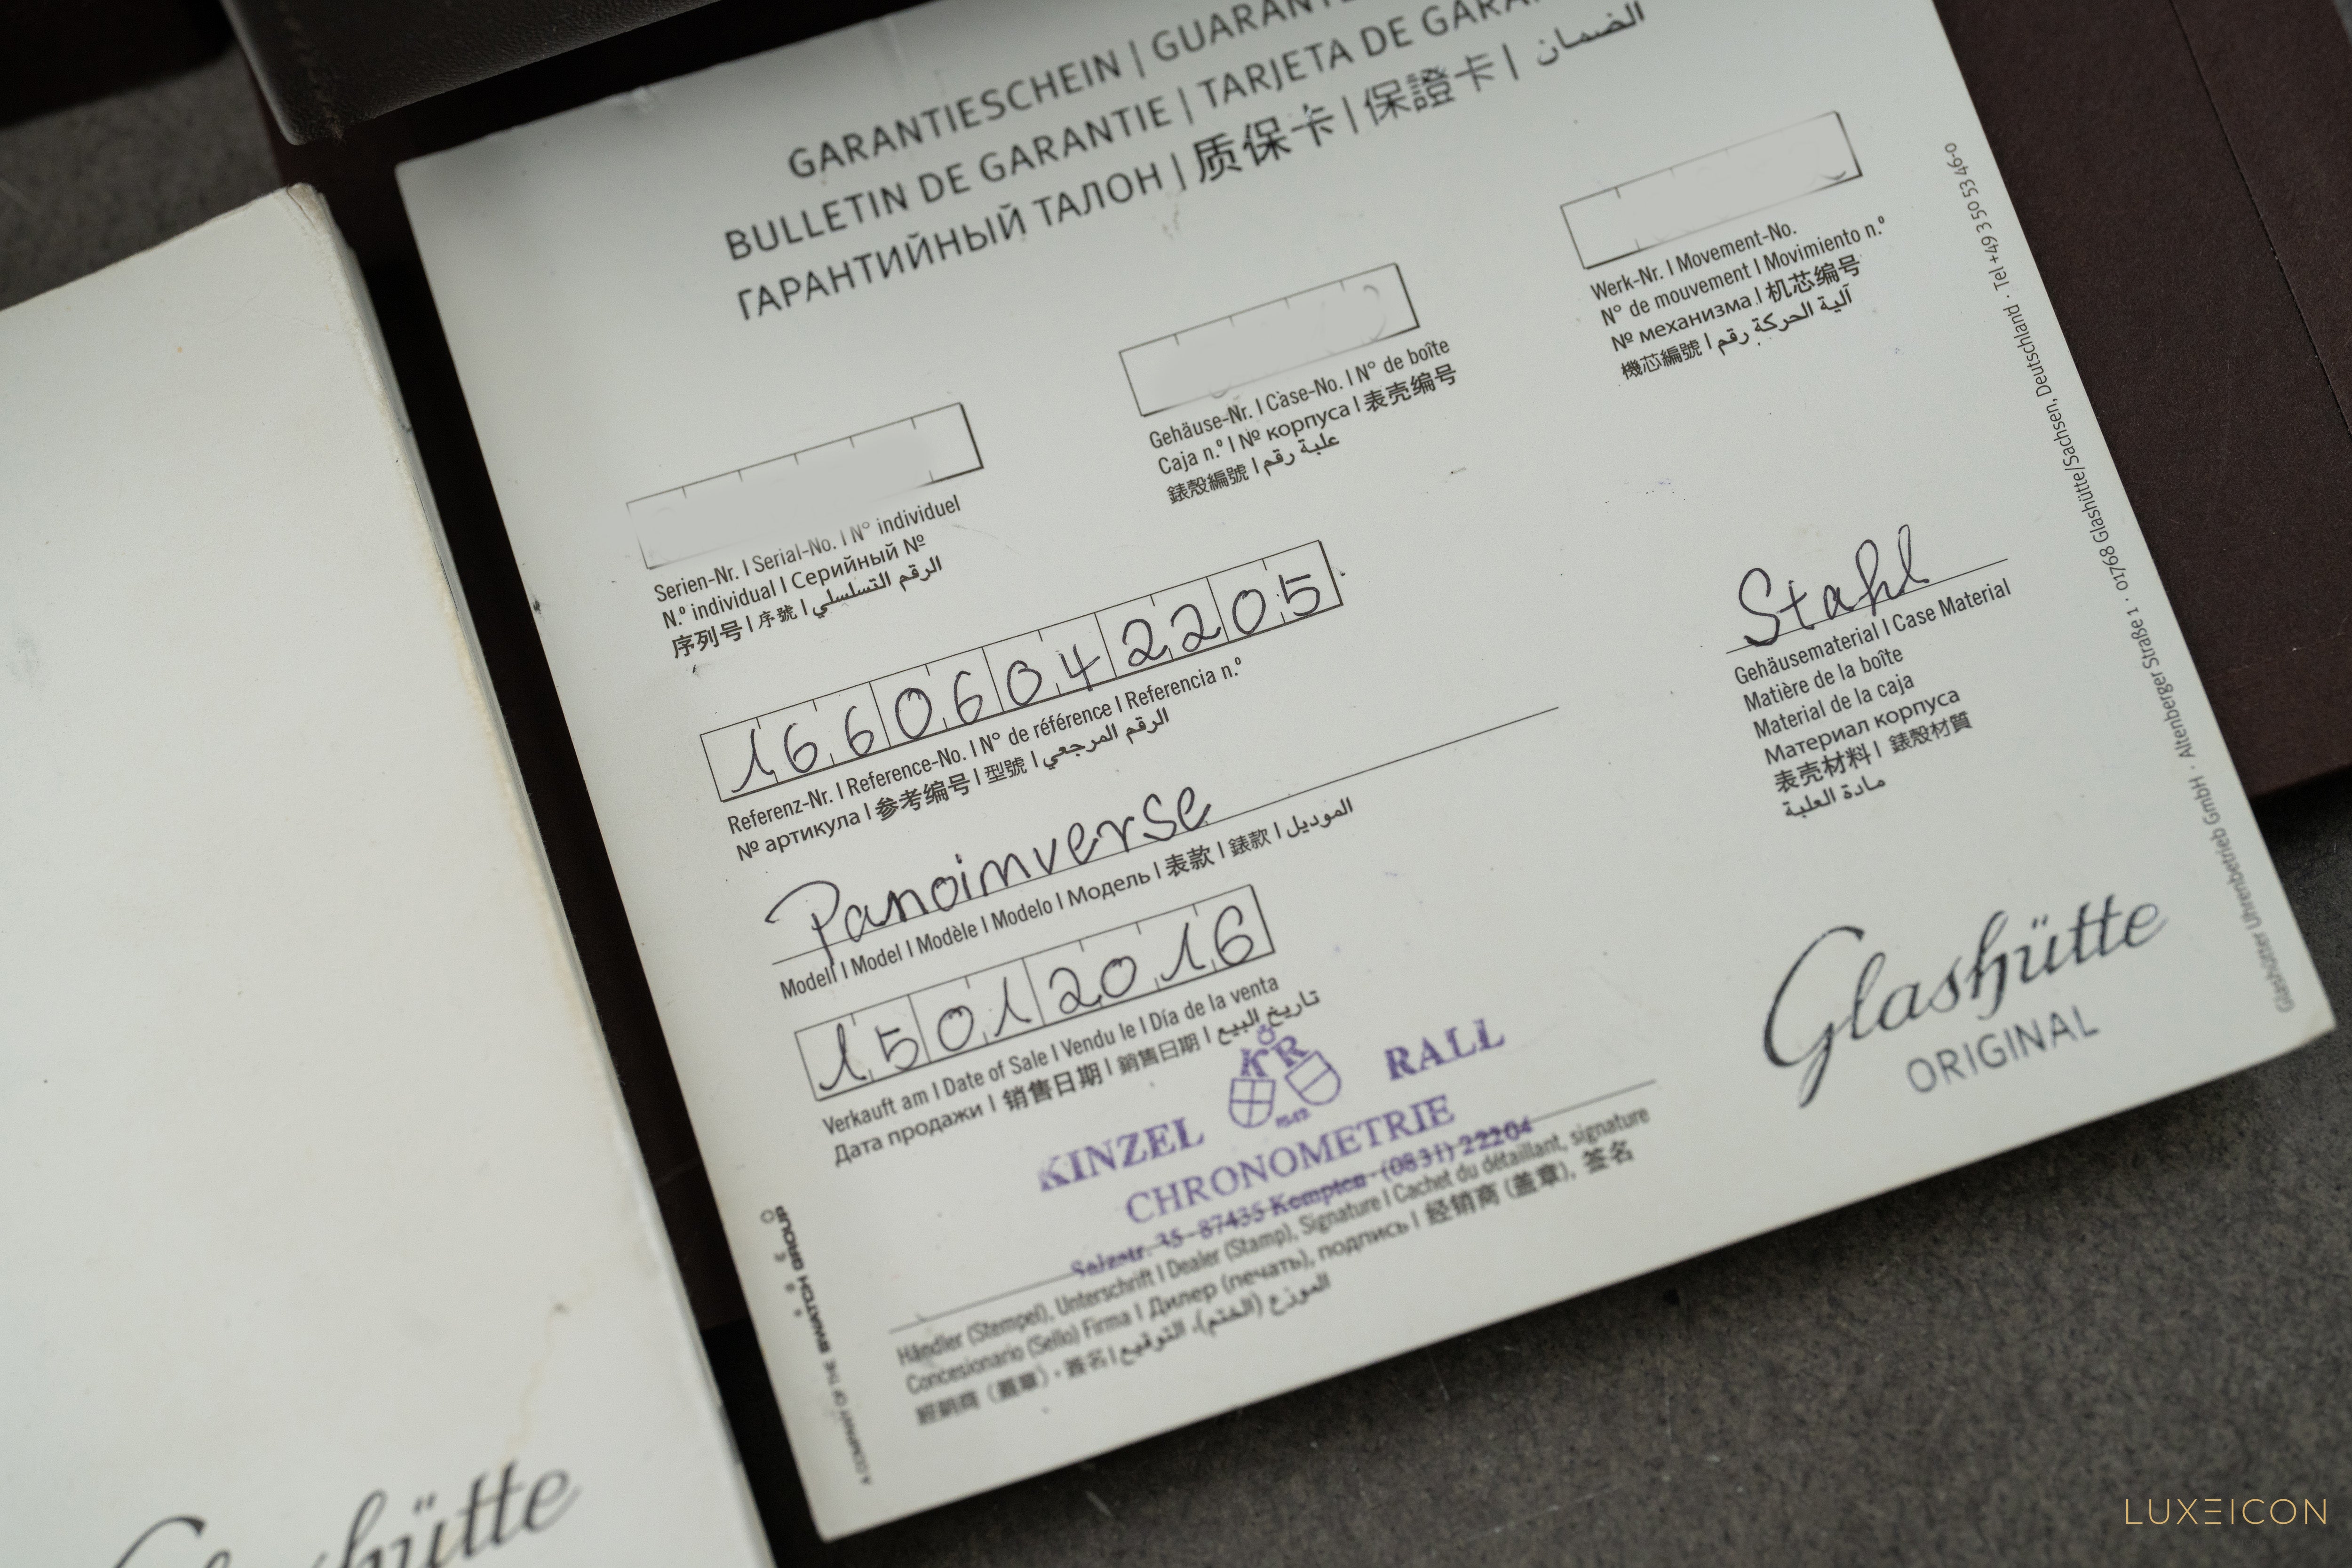 GARANTIESCHEIN | GUARANTE
BULLETIN DE GARANTIE | TARJETA DE GARAN
ГАРАНТИЙНЫЙ ТАЛОН | 质保卡 | 保證卡 | الضمان
Werk-Nr. | Movement-No.
N° de mouvement | Movimiento n.º
№ механизма | 机芯编号
機芯編號 | آلية الحركة رقم
Gehäuse-Nr. | Case-No. | N° de boîte
Caja n.º | № корпуса | 表壳编号
錶殼編號 | علبة رقم
Serien-Nr. | Serial-No. | N° individuel
N.º individual | Серийный №
序列号 | 序號 | الرقم التسلسلي
16606042205
Referenz-Nr. | Reference-No. | N° de référence | Referencia n.º
№ артикула | 参考编号 | 型號 | الرقم المرجعي
Stahl
Gehäusematerial | Case Material
Matière de la boîte
Material de la caja
Материал корпуса
表壳材料 | 錶殼材質
مادة العلبة
Panoinverse
Modell | Model | Modèle | Modelo | Модель | 表款 | 錶款 | الموديل
15012016
Verkauft am | Date of Sale | Vendu le | Día de la venta
Дата продажи | 销售日期 | 銷售日期 | تاريخ البيع
KR
KINZEL RALL
CHRONOMETRIE
Salzstr. 35 - 87435 Kempten - (0831) 22204
Händler (Stempel), Unterschrift | Dealer (Stamp), Signature | Cachet du détaillant, signature
Concesionario (Sello) Firma | Дилер (печать), подпись | 经销商 (盖章), 签名
經銷商 (蓋章)، 簽名 | الموزع (الختم)، التوقيع
Glashütte
ORIGINAL
A COMPANY OF THE SWATCH GROUP
Glashütter Uhrenbetrieb GmbH · Altenberger Straße 1 · 01768 Glashütte/Sachsen, Deutschland · Tel +49 3 50 53 46-0
Glashütte
LUXEICON